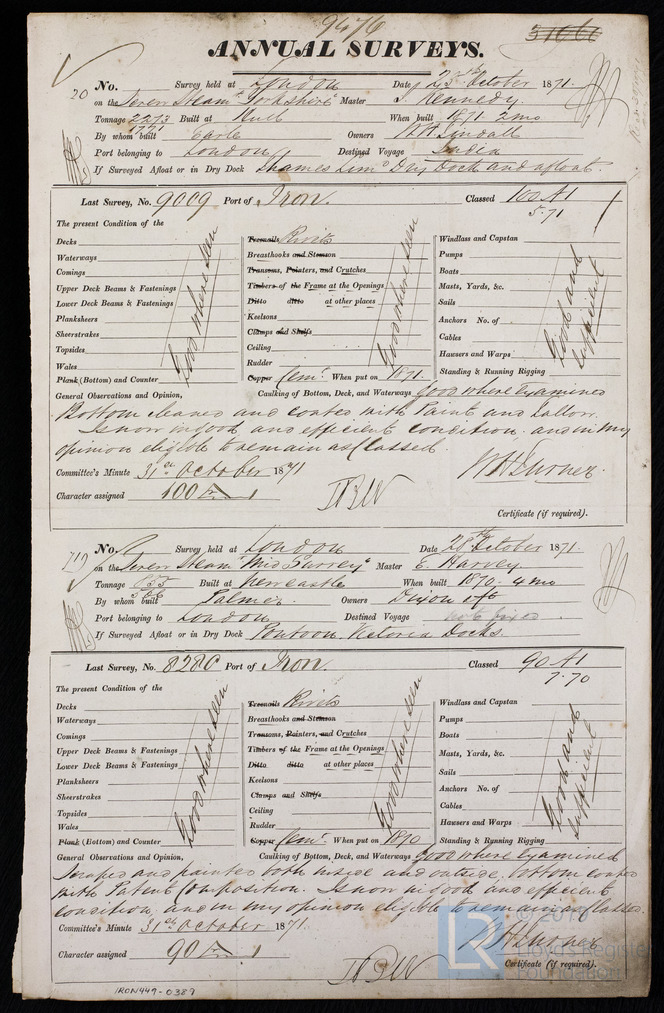 9476
5106
ANNUAL SURVEYS.
20 No. Survey held at London Date, 25th October 1871.
on the Screw Steam "Yorkshire" Master Kennedy.
Tonnage 2273 1771 Built at Hull When built 1871 2mo
By whom built Earle Owners Lindall
Port belonging to London Destined Voyage India
If Surveyed Afloat or in Dry Dock Thames Dry Dock and afloat.
Last Survey, No. 9009 Port of Iron. Classed 100 A1
5.71
The present Condition of the
Decks Treenails Rivets Windlass and Capstan
Waterways Breasthooks and Stemson Pumps
Comings Transoms, Pointers, and Crutches Boats
Upper Deck Beams & Fastenings Timbers of the Frame at the Openings Masts, Yards, &c.
Lower Deck Beams & Fastenings Ditto ditto at other places Sails
Planksheers Keelsons Anchors No. of
Sheerstrakes Clamps and Shelfs Cables
Topsides Ceiling Hausers and Warps
Wales Rudder Standing & Running Rigging
Good where seen Good where seen Good and sufficient
Plank (Bottom) and Counter Copper Cemt. When put on 1871.
General Observations and Opinion, Caulking of Bottom, Deck, and Waterways Good where Examined
Bottom cleaned and coated with Paint and Tallow.
Is now in good and efficient condition and in my
opinion eligible to remain as Classed.
Committee's Minute 31st October 1871
Character assigned 100 A 1
Certificate (if required).
719 No. Survey held at London Date 28th October 1871.
on the Screw Steam "Mid Surrey" Master E. Harvey.
Tonnage 568 Built at Newcastle When built 1870. 4mo
By whom built Palmer. Owners Dixon
Port belonging to London Destined Voyage not fixed
If Surveyed Afloat or in Dry Dock Pontoon Victoria Docks.
Last Survey, No. 8280 Port of Iron. Classed 90 A1
7.70
The present Condition of the
Decks Treenails Rivets Windlass and Capstan
Waterways Breasthooks and Stemson Pumps
Comings Transoms, Pointers, and Crutches Boats
Upper Deck Beams & Fastenings Timbers of the Frame at the Openings Masts, Yards, &c.
Lower Deck Beams & Fastenings Ditto ditto at other places Sails
Planksheers Keelsons Anchors No. of
Sheerstrakes Clamps and Shelfs Cables
Topsides Ceiling Hausers and Warps
Wales Rudder Standing & Running Rigging
Good where seen Good where seen Good and sufficient
Plank (Bottom) and Counter Copper Cemt. When put on 1870
General Observations and Opinion, Caulking of Bottom, Deck, and Waterways Good where Examined
Scraped and painted both inside and outside, bottom coated
with Patent Composition. Is now in good and efficient
condition, and in my opinion eligible to remain as Classed.
Committee's Minute 31st October 1871.
Character assigned 90 A 1
Certificate (if required).
IRON449-0389
LR © 2019
Lloyd's Register
Foundation